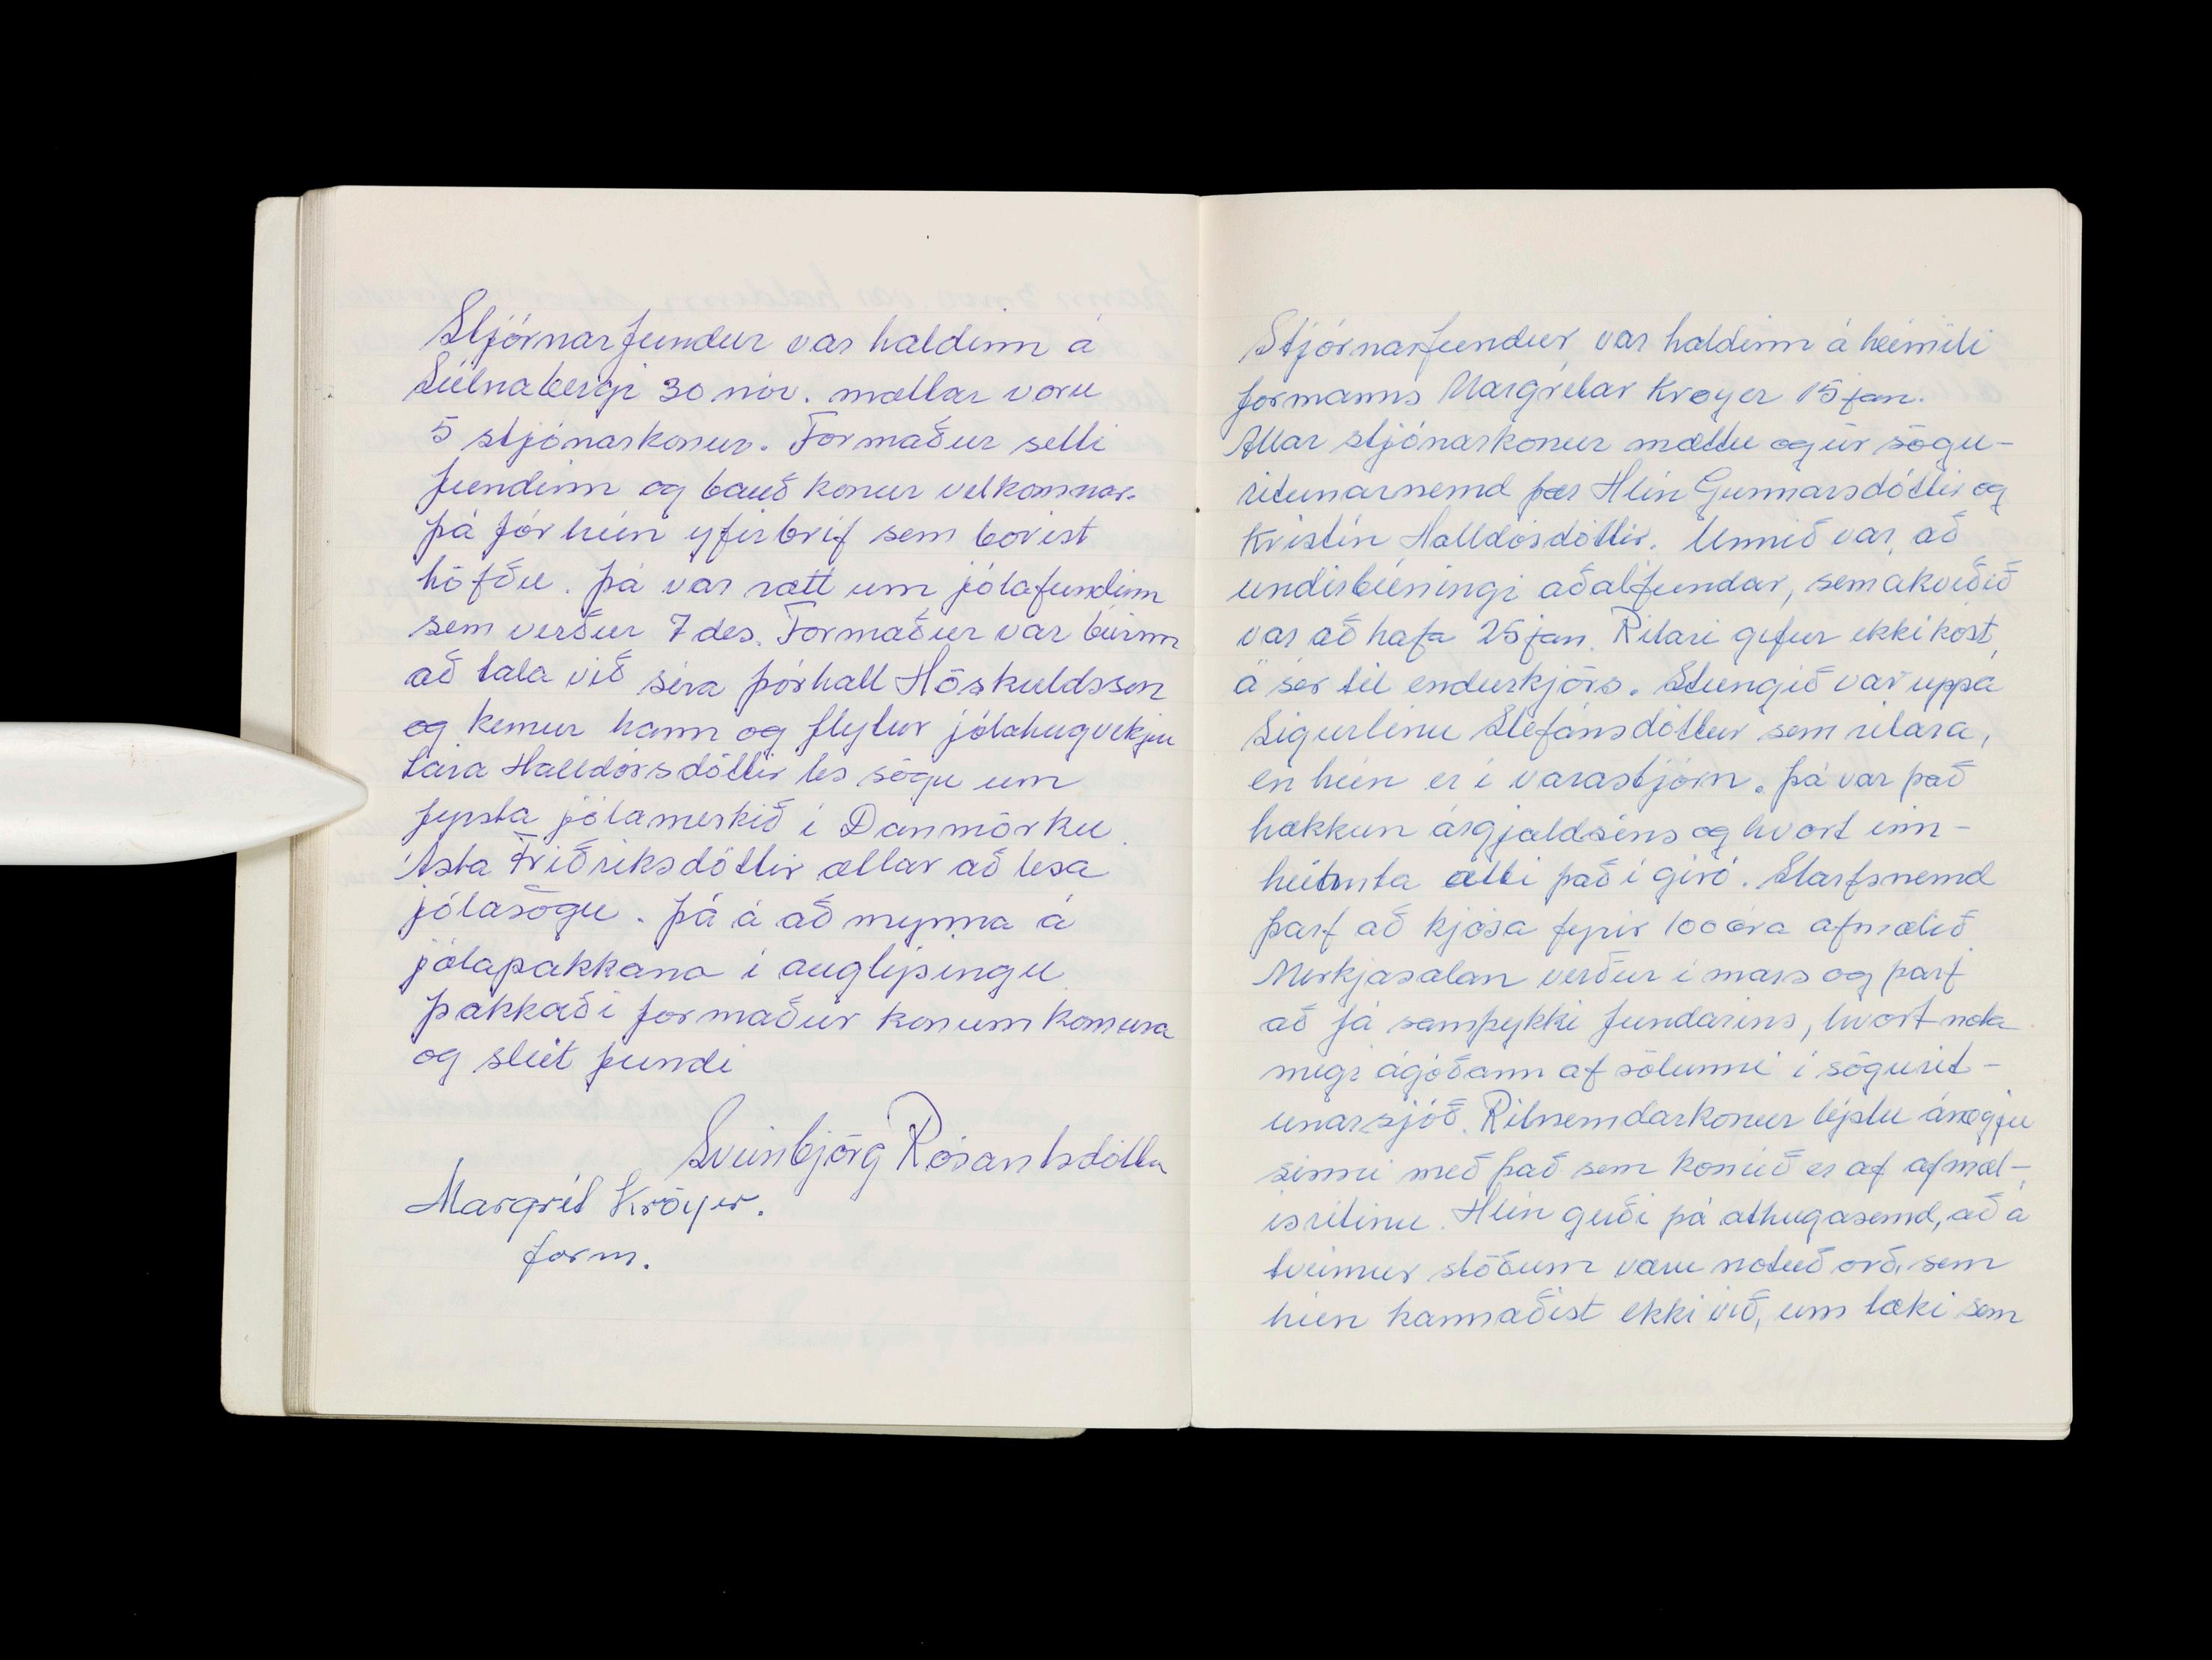 Stjórnarfundur var haldinn á
Súlnabergi 30 nóv. mættar voru
5 stjónarkonur. Formaður setti
fundinn og bauð konur velkomnar.
Þá fór hún yfirbréf sem borist
höfðu. Þá var rætt um jólafundinn
sem verður 7 des. Formaður var búinn
að tala við séra Þórhall Höskuldsson
og kemur hann og flytur jólahugvekju
Lára Halldórsdóttir les sögu um
fyrsta jólamerkið í Danmörku.
Ásta Friðriksdóttir ætlar að lesa
jólasögu. Þá á að mynna á
jólapakkana í auglýsingu
Þakkaði formaður konum komuna
og sleit fundi
Sveinbjörg Rósantsdóttir
Margrét Kröyer.
form.
Stjórnarfundur var haldinn á heimili
formanns Margrétar Kröyer 15 jan.
Allar stjónarkonur mættu og úr sögu-
ritunarnemd þær Hlín Gunnarsdóttir og
Kristín Halldósdóttir. Unnið var að
undirbúningi aðalfundar, sem ákveðið
var að hafa 25 jan. Ritari gefur ekki kost
á sér til endurkjörs. Stungið var uppá
Sigurlínu Stefánsdóttur sem ritara,
en hún er í varastjórn. Þá var það
hækkun árgjaldsins og hvort inn-
heimta ætti það í gíró. Starfsnemd
þarf að kjósa fyrir 100 ára afmælið
Merkjasalan verður í mars og þarf
að fá samþykki fundarins, hvort nota
megi ágóðann af sölunni í sögurit-
unarsjóð. Ritnemdarkonur lýstu ánægju
sinni með það sem komið er af afmæl-
isritinu. Hlín gerði þá athugasemd, að á
tveimur stöðum væru notuð orð, sem
hún kannaðist ekki við, um tæki sem